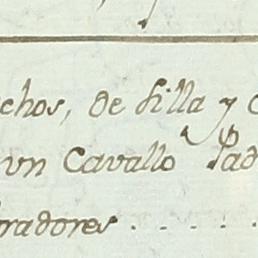 chos, de silla y
vn Cavallo Pad
radores . . . . .